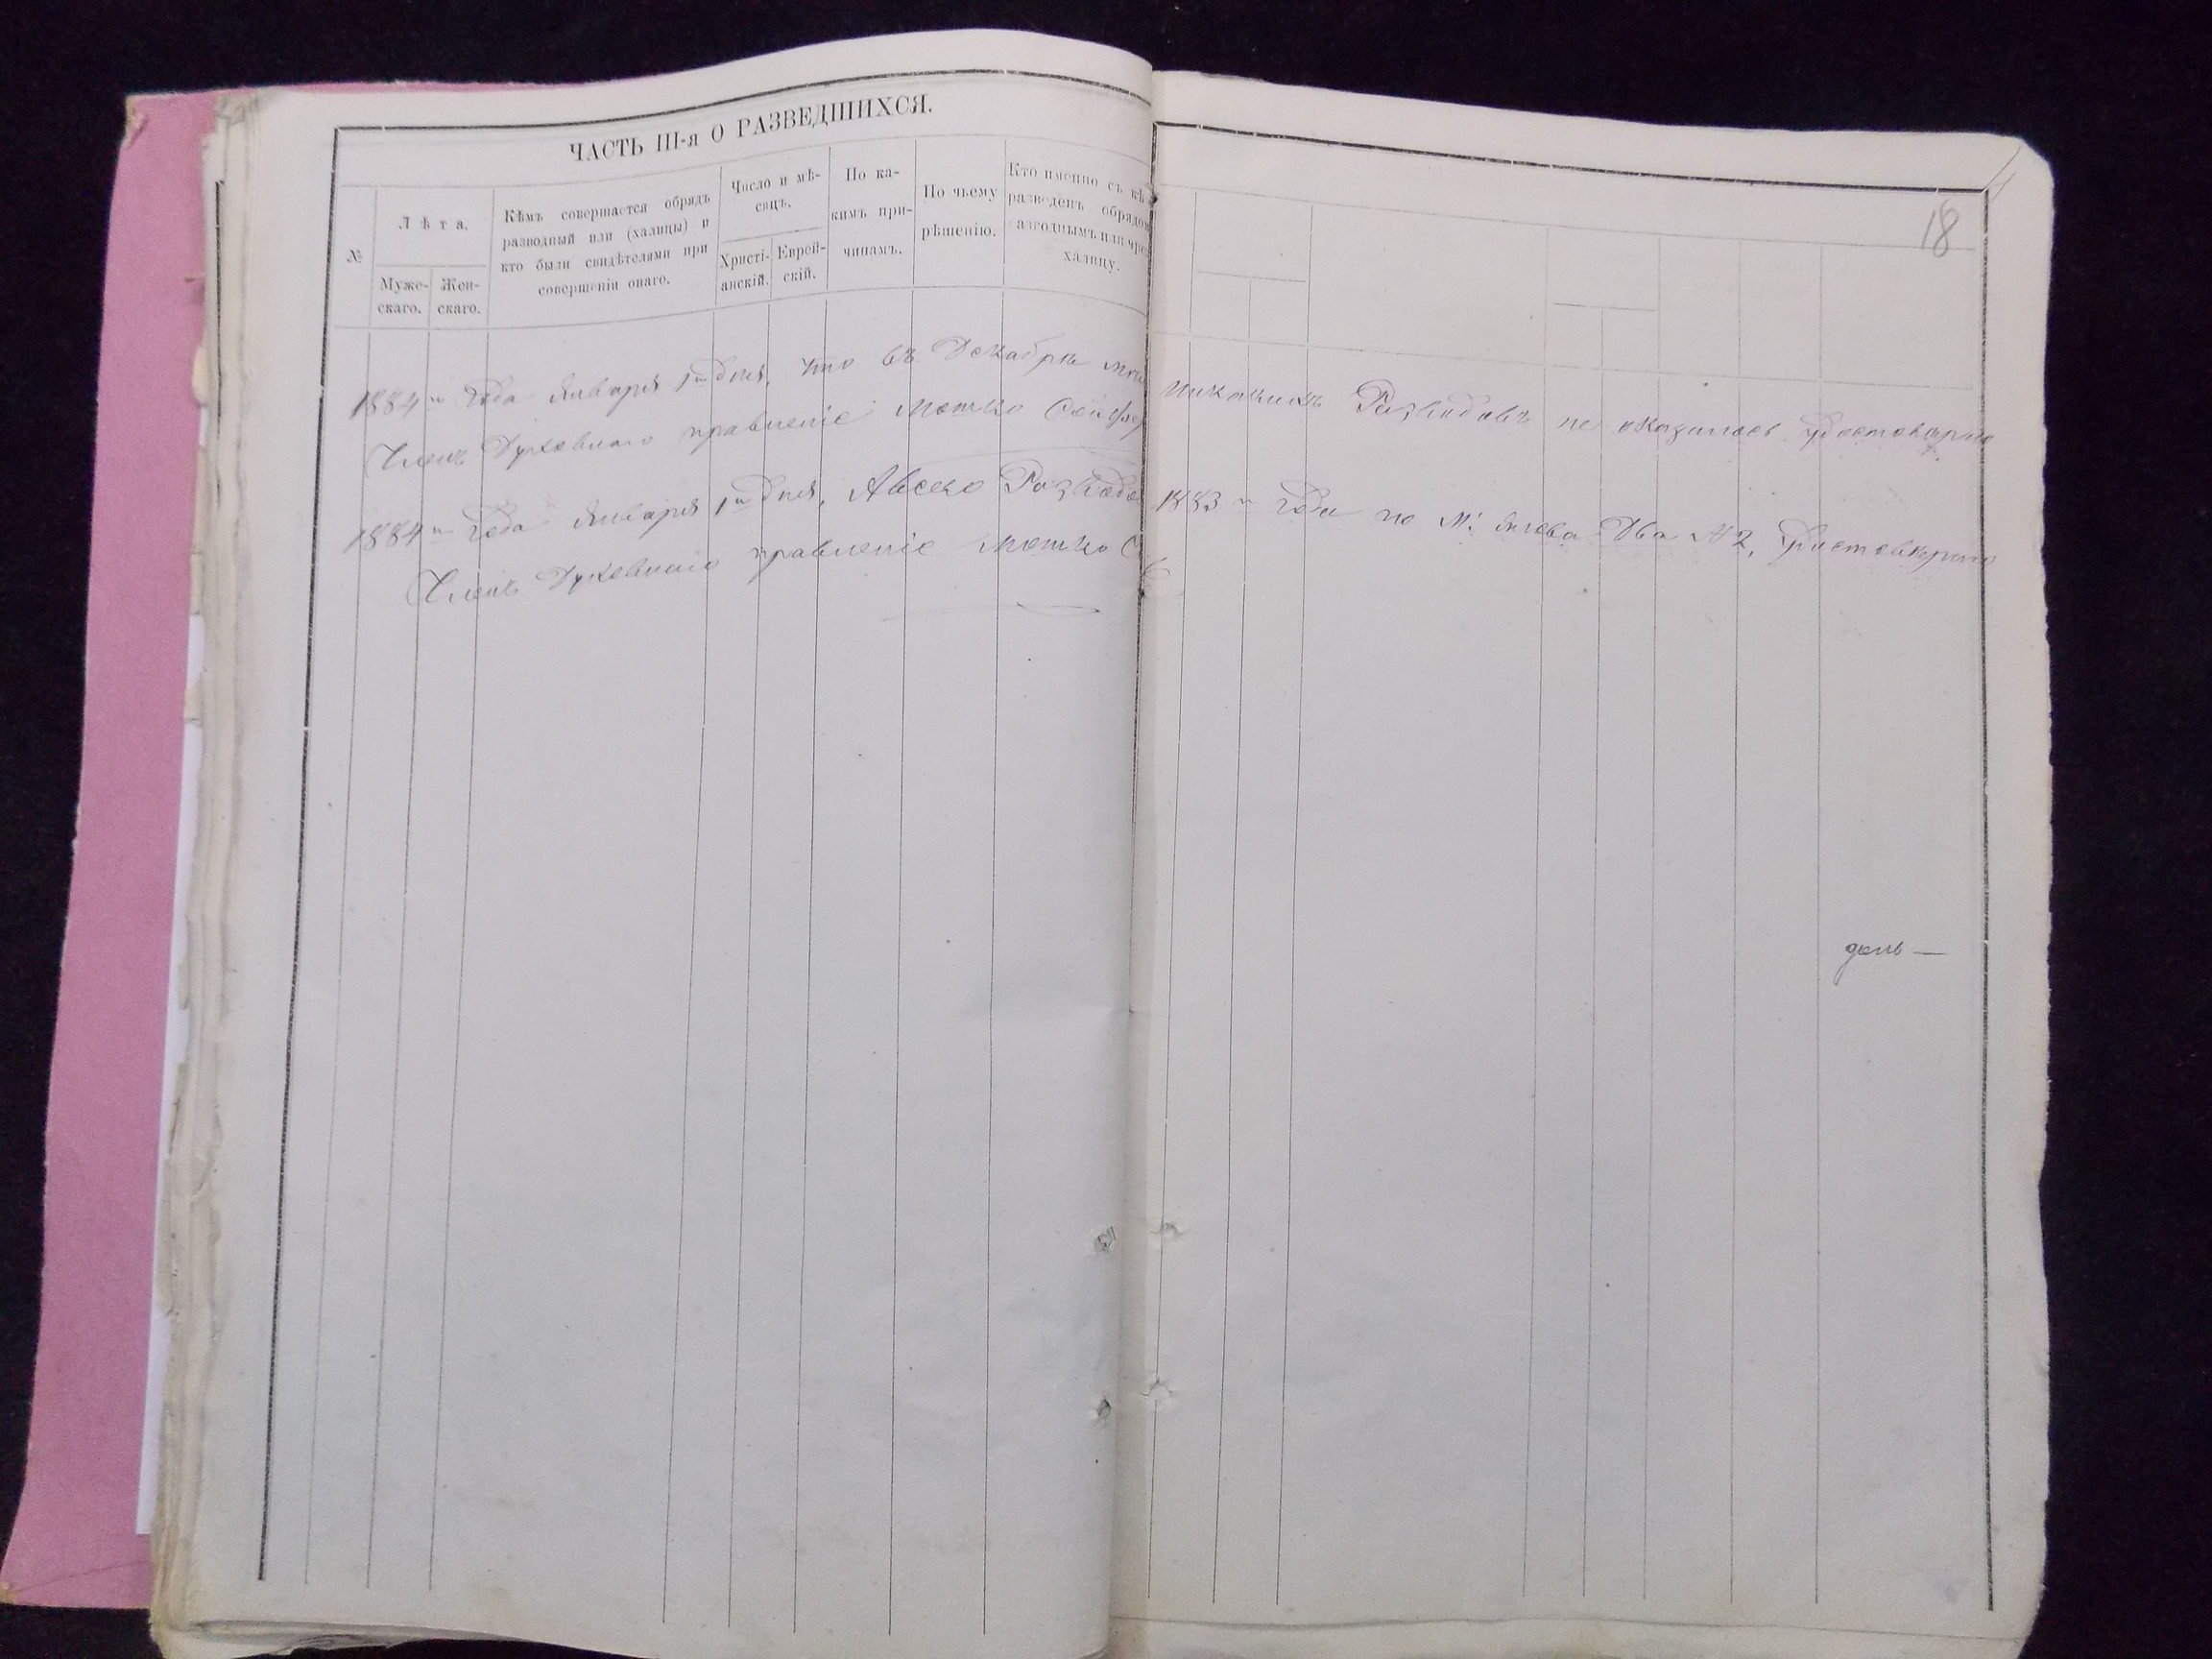 ЧАСТЬ III-я О РАЗВЕДШИХСЯ.
№
Лѣта.
Муже-
скаго.
Жен-
скаго.
Кѣмъ совершается обрядъ
разводный или (халицы) и
кто были свидѣтелями при
совершеніи онаго.
Число и мѣ-
сяцъ.
Христі-
анскій.
Еврей-
скій.
По ка-
кимъ при-
чинамъ.
По чьему
рѣшенію.
Кто именно съ кѣ
разведенъ обрядо
азводнымъ или чре
халицу.
18
1884 года Января 1 дня, что въ Декабрѣ никакихъ Разводовъ не оказалось удостовѣряю
Членъ Духовнаго правленіе Мотько
1884 года Января 1 дня, Авсего Разводо 1883 года по М. Два № 2, Удостовѣряю
Членъ Духовнаго правленіе Мотько С
день —